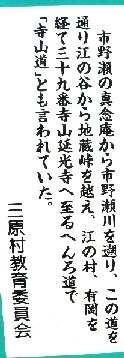 市野瀬の真念庵から市野瀬川を遡り、この道を
通り江の谷から地蔵峠を越え、江の村、有岡を
経て三十九番寺山延光寺へ至るへんろ道で
「寺山道」とも言われていた。
三原村教育委員会